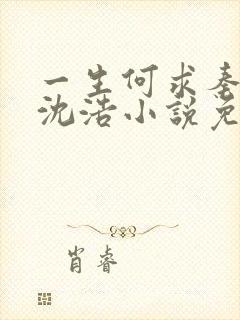 一生何求秦
沈浩小說免
肖睿